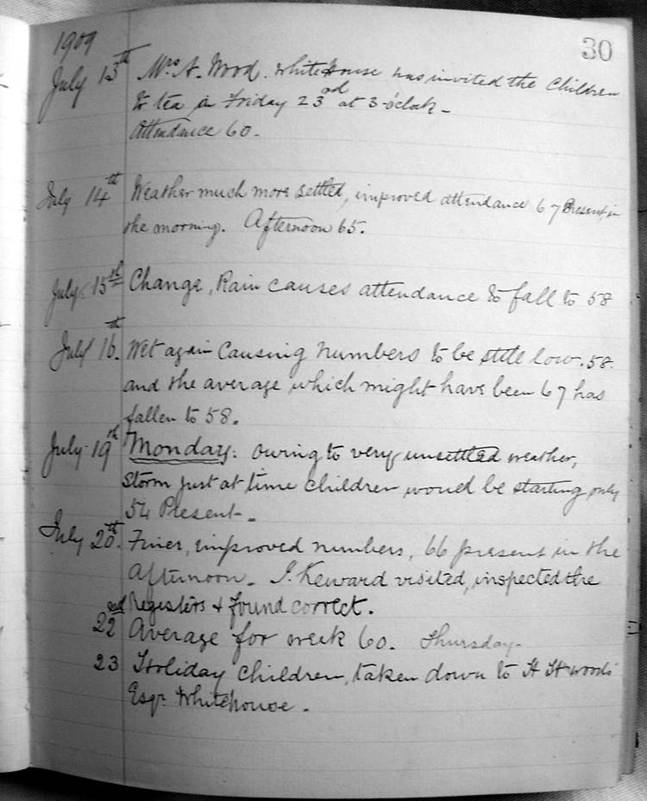 30
1909
July 13th Mrs A. Wood. Whitehouse has invited the Children
to tea on Friday 23rd at 3 o'clock -
Attendance 60 -
July 14th Weather much more settled, improved attendance 67 Present in
the morning. Afternoon 65.
July 15th Change, Rain causes attendance to fall to 58
July 16th. Wet again Causing numbers to be still low. 58.
and the average which might have been 67 has
fallen to 58.
July 19th Monday: owing to very unsettled weather,
Storm just at time children would be starting only
54 Present -
July 20th. Finer, improved numbers, 66 present in the
afternoon - Keward visited, inspected the
Registers & found correct.
22nd Average for week 60. Thursday -
23 Holiday Children, taken down to H H Woods
Esqr Whitehouse -